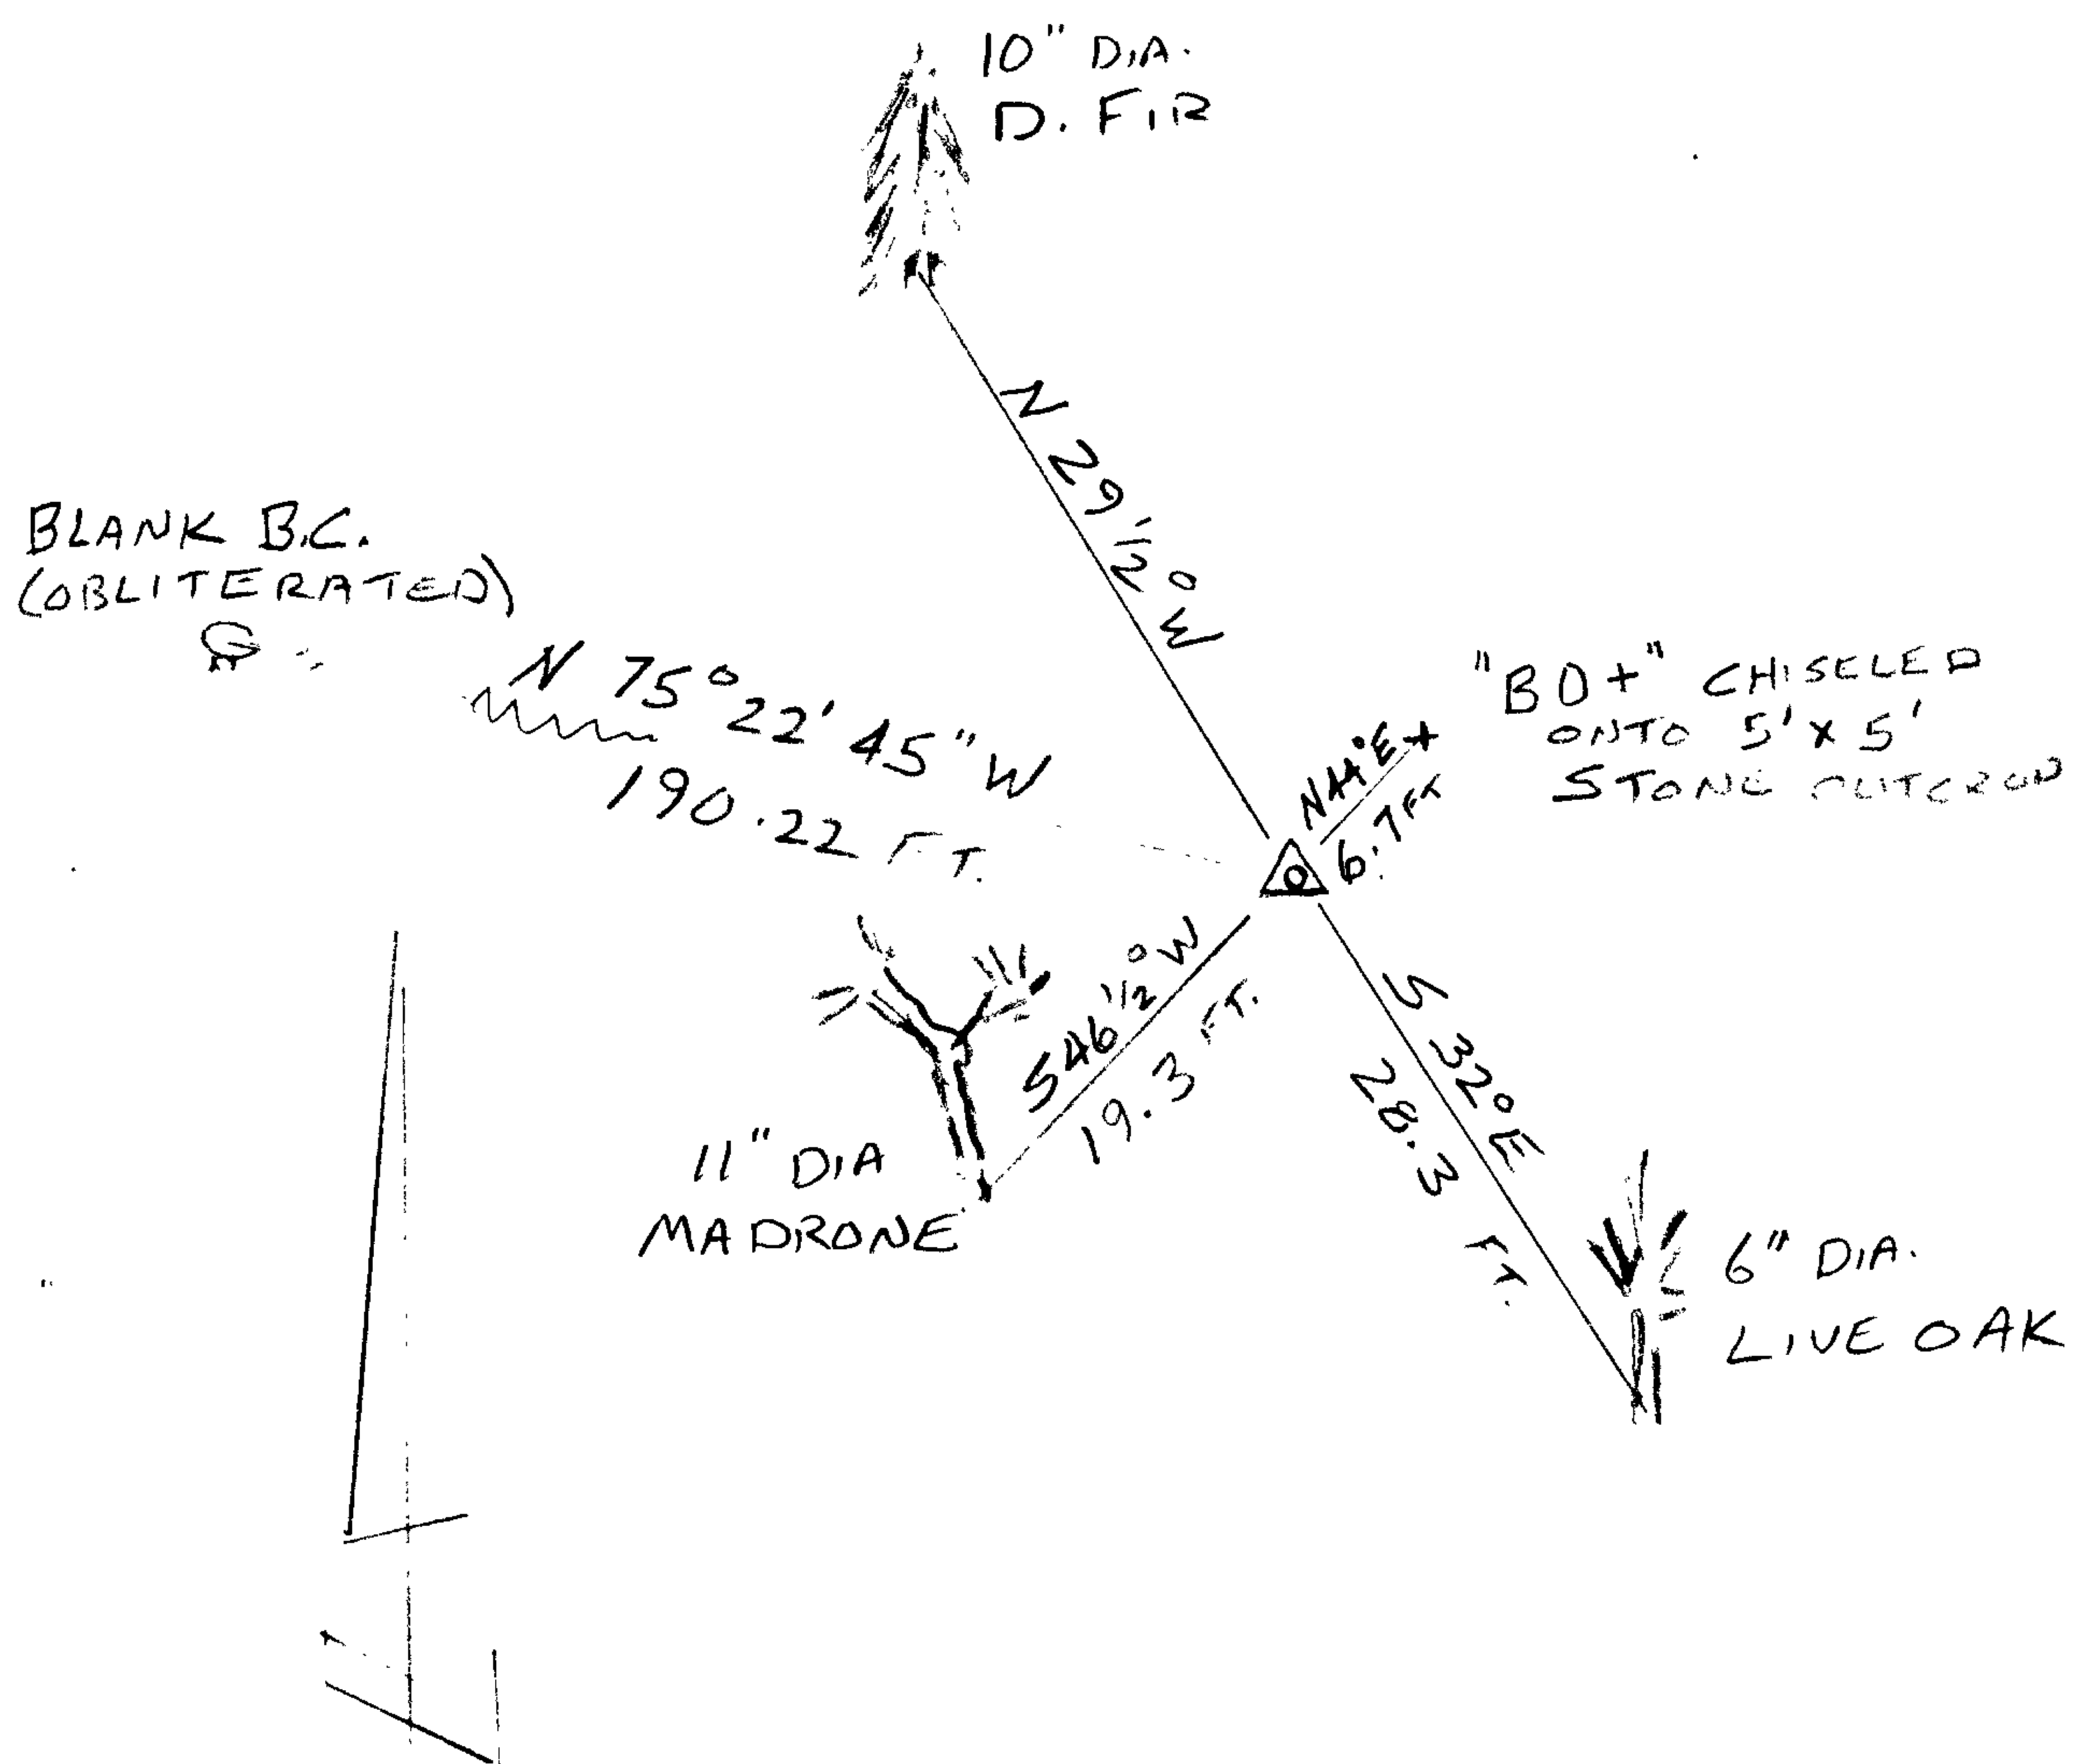 10" DIA.
D. FIR
N 29 1/2° W
BLANK B.C.
(OBLITERATED)
N 75° 22' 45" W
190.22 FT.
"BD+" CHISELED
ONTO 5' X 5'
STONE OUTCROP
N44°E
6.7 FT
S46 1/2° W
19.3 FT.
S 32° E
28.3 FT.
11" DIA
MADRONE
6" DIA.
LIVE OAK